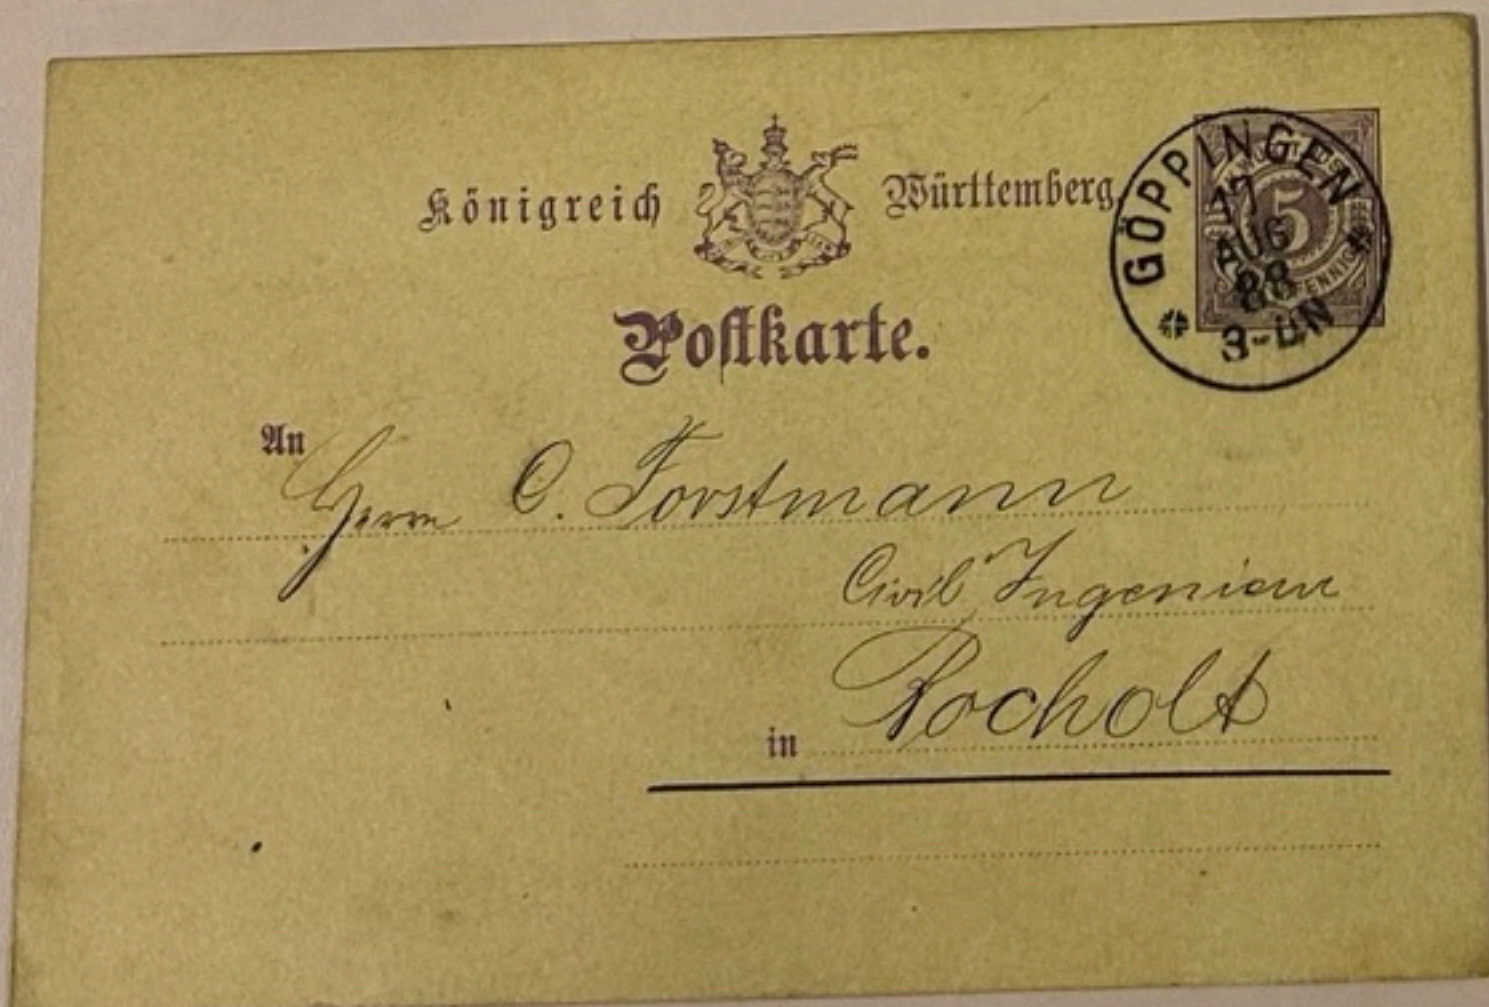 Königreich Württemberg
GÖPPINGEN
17
AUG
88
3-UN
5
PFENNIG
Postkarte.
An Herrn C. Forstmann
Civil Ingenieur
in Bocholt